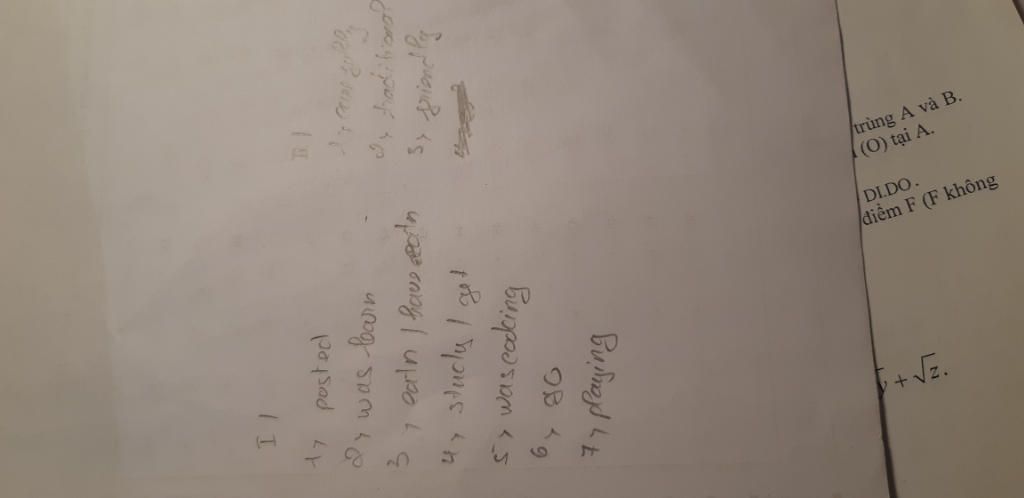 I /
1, posted
2, was learn
3, earn / have earn
4, study / get
5, was cooking
6, go
7, playing
II /
1,
2, traditional
3, friendly
4,
trùng A và B.
(O) tại A.
DI.DO.
điểm F (F không
+ √z.